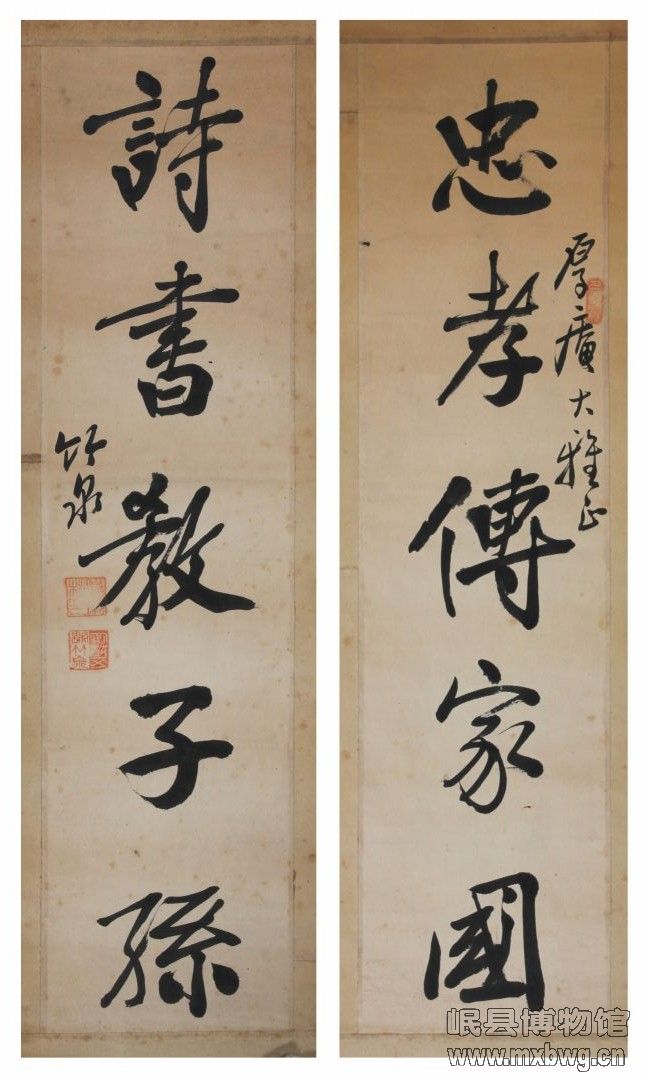 忠孝傳家國
厚广大雅正
詩書教子孫
竹泉
岷县博物馆
www.mxbwg.cn